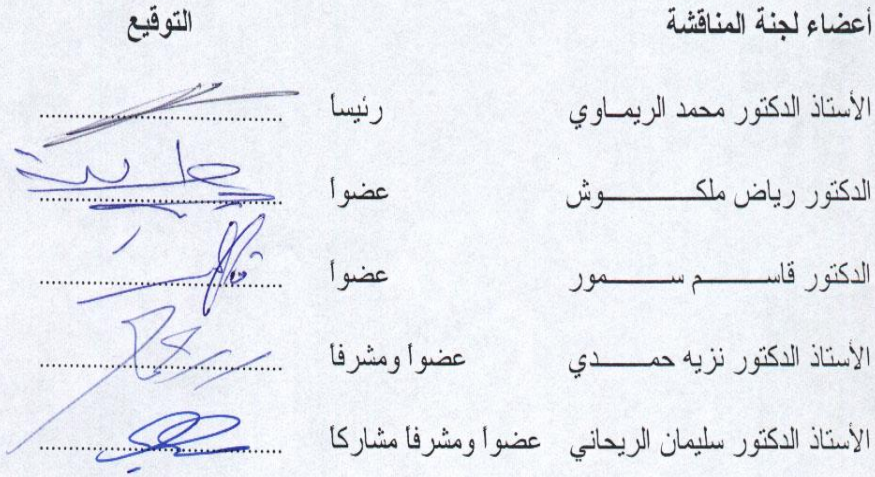 أعضاء لجنة المناقشة التوقيع
الأستاذ الدكتور محمد الريمـاوي رئيساً ......................
الدكتور رياض ملكـــــــوش عضواً ......................
الدكتور قاســـــم ســـــمور عضواً ......................
الأستاذ الدكتور نزيه حمــــدي عضواً ومشرفاً ......................
الأستاذ الدكتور سليمان الريحاني عضواً ومشرفاً مشاركاً ......................